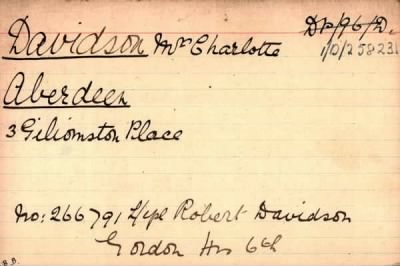 Davidson Mrs Charlotte
DP/96/D.
1/D/258231
Aberdeen
3 Giliomston Place
No: 266791 L/cpl Robert Davidson
Gordon Hrs 6th
B.B.